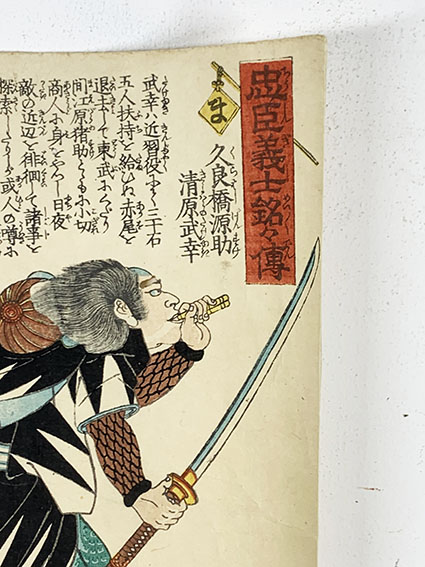 忠臣義士銘々傳
ま
久良橋源助
清原武幸
武幸ハ近習役にて二十石
五人扶持を給ひぬ赤尾を
退去して東武にくだり
間江原猪助とともに小切
商人に身をやつし日夜
敵の近辺を徘徊て諸事を
或人の噂に